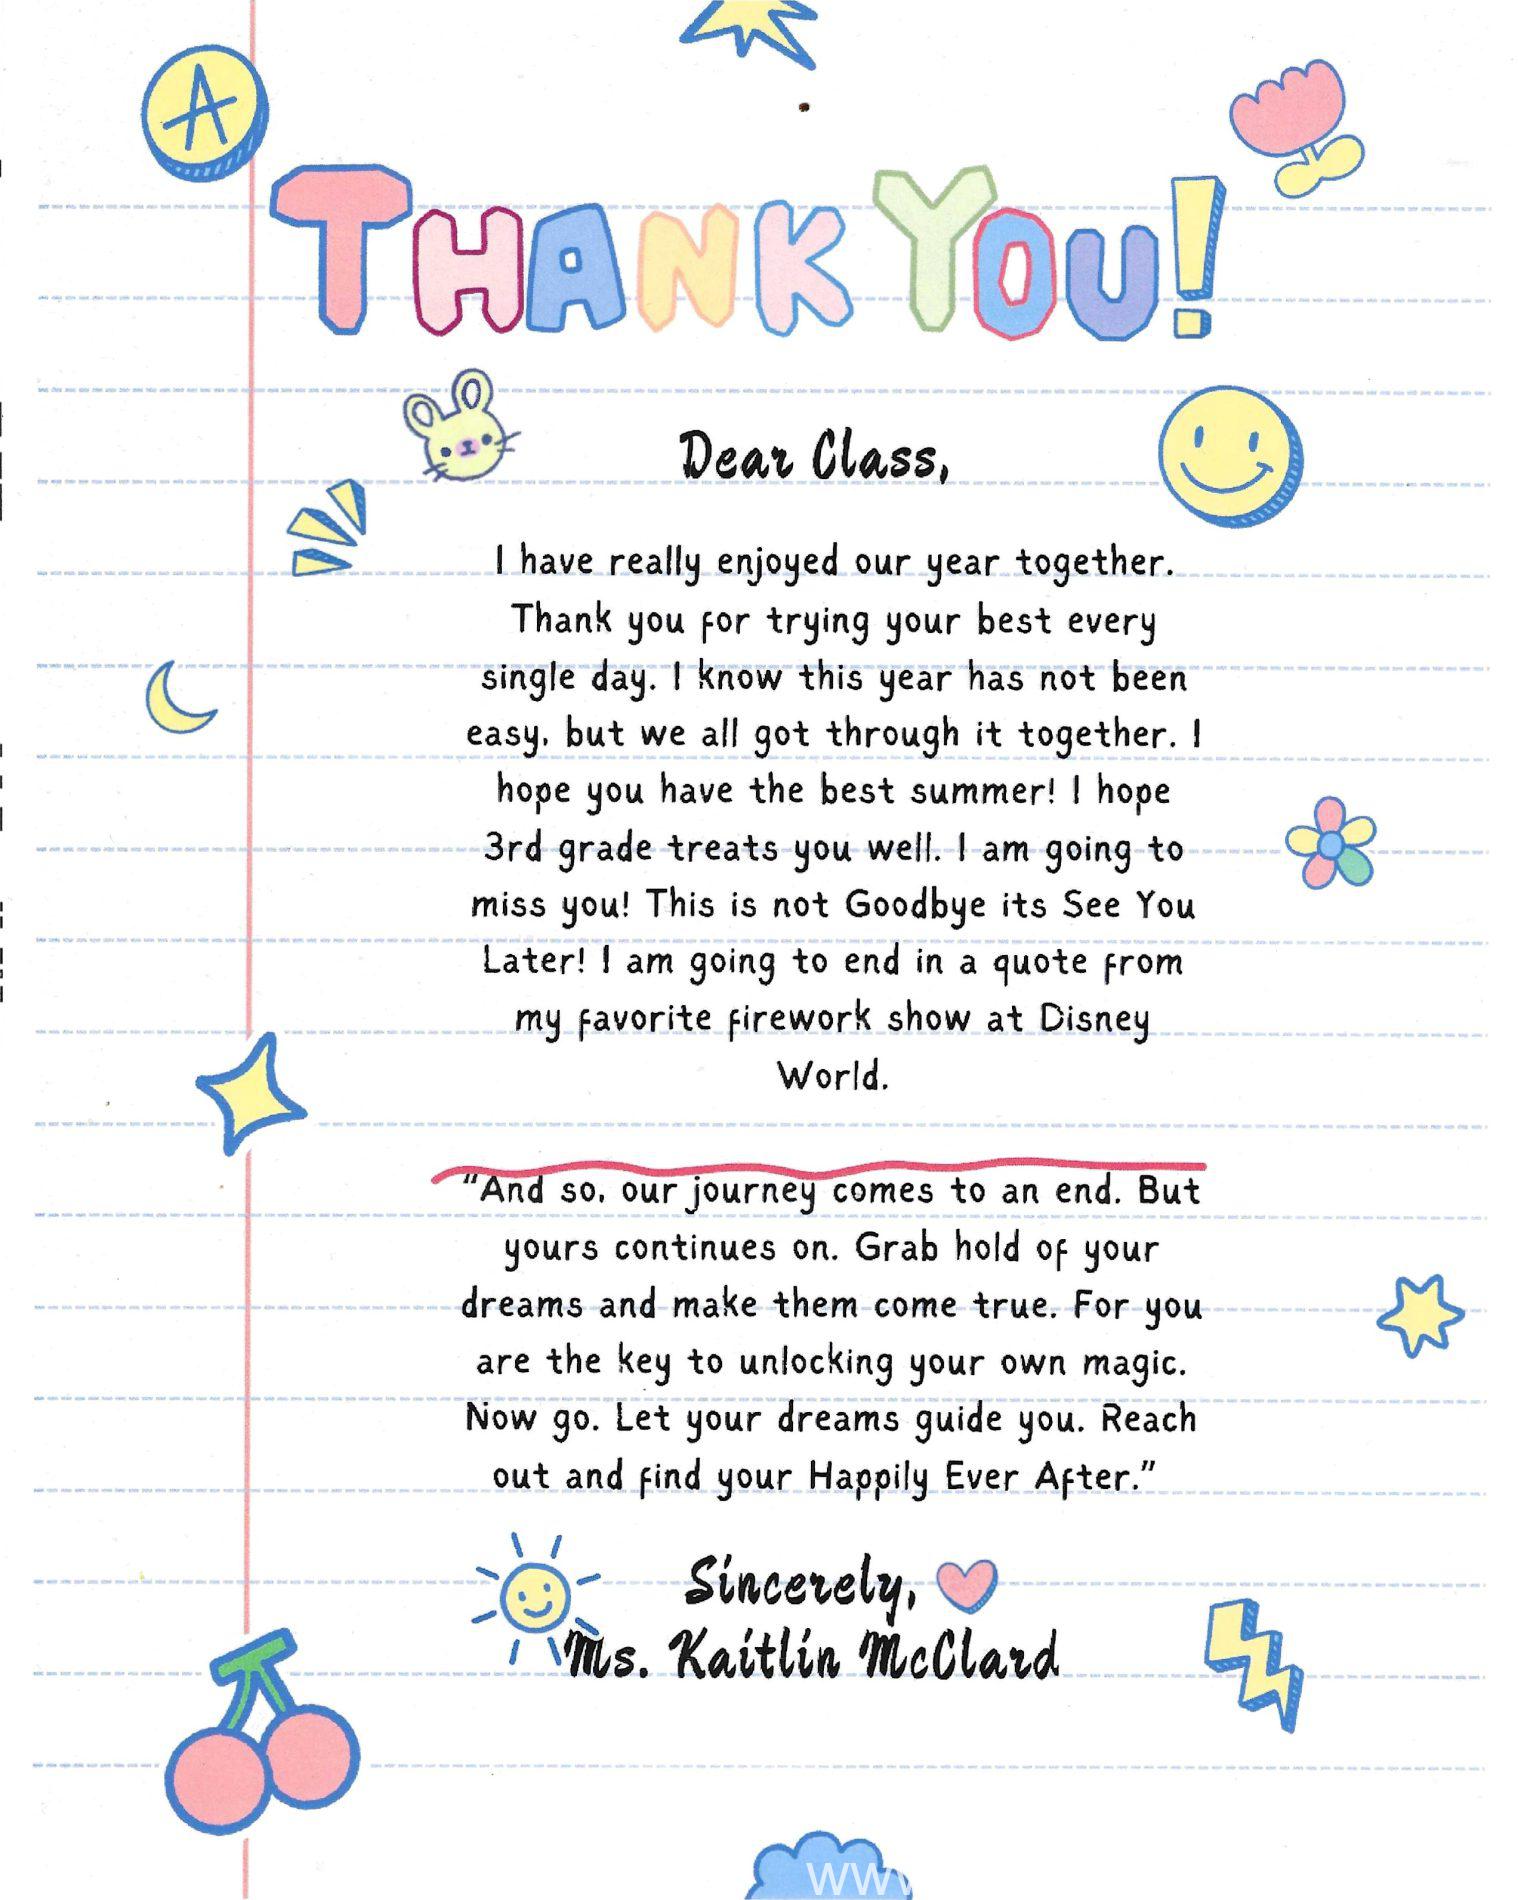 A
THANK YOU!
Dear Class,
I have really enjoyed our year together.
Thank you for trying your best every
single day. I know this year has not been
easy, but we all got through it together. I
hope you have the best summer! I hope
3rd grade treats you well. I am going to
miss you! This is not Goodbye its See You
Later! I am going to end in a quote from
my favorite firework show at Disney
World.
"And so, our journey comes to an end. But
yours continues on. Grab hold of your
dreams and make them come true. For you
are the key to unlocking your own magic.
Now go. Let your dreams guide you. Reach
out and find your Happily Ever After."
Sincerely,
Ms. Kaitlin McClard
www